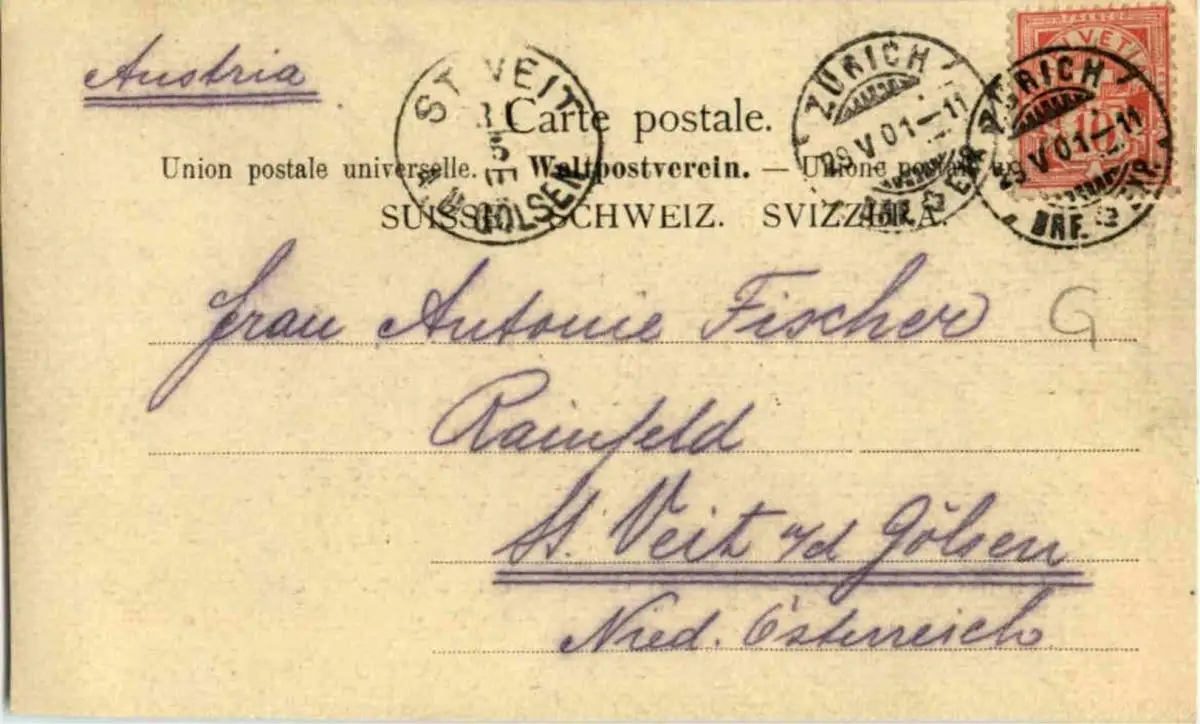 Austria
Carte postale.
Union postale universelle. — Weltpostverein. — Unione postale
SUISSE. SCHWEIZ. SVIZZERA.
ST. VEIT
GÖLSEN
ZÜRICH
29 V 01–11
BRF.
HELVETIA
FRANCO
10
ZÜRICH
29 V 01–11
BRF. EXP.
Frau Antonie Fischer
G
Rainfeld
St. Veit a/d Gölsen
Nied. Österreich